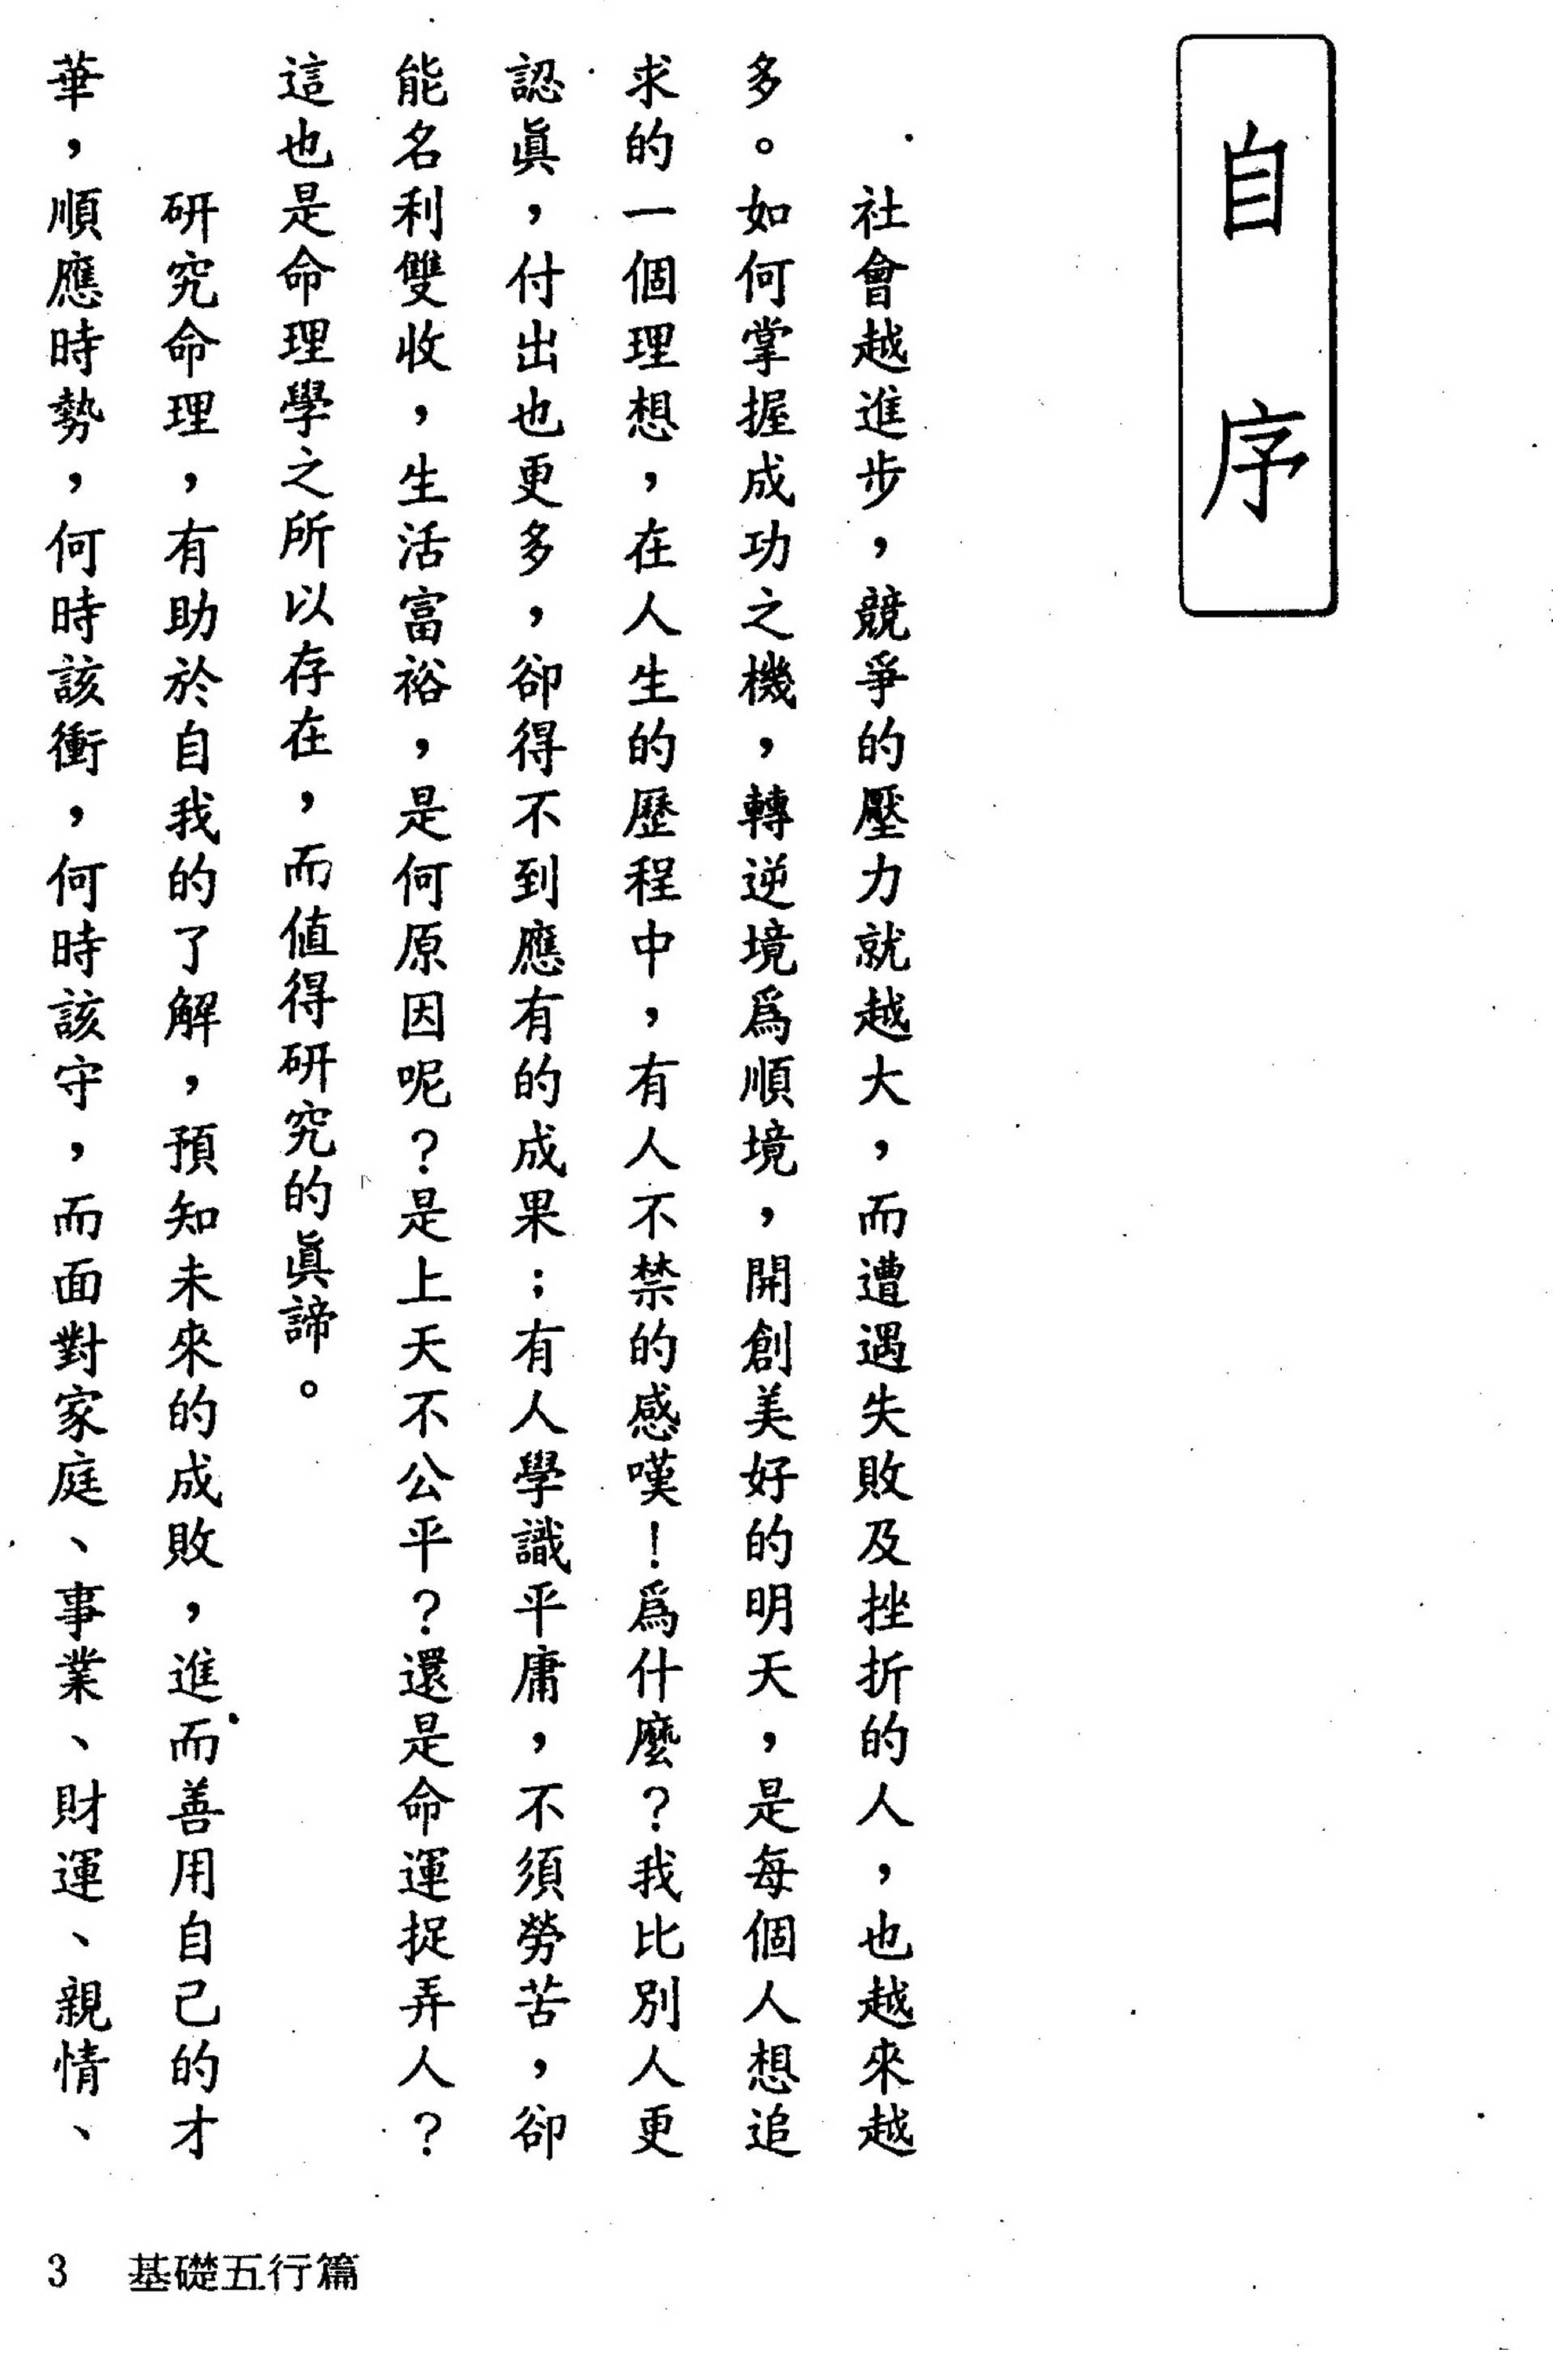 自序
社會越進步，競爭的壓力就越大，而遭遇失敗及挫折的人，也越來越
多。如何掌握成功之機，轉逆境爲順境，開創美好的明天，是每個人想追
求的一個理想，在人生的歷程中，有人不禁的感嘆！爲什麼？我比別人更
認眞，付出也更多，卻得不到應有的成果；有人學識平庸，不須勞苦，卻
能名利雙收，生活富裕，是何原因呢？是上天不公平？還是命運捉弄人？
這也是命理學之所以存在，而值得研究的眞諦。
研究命理，有助於自我的了解，預知未來的成敗，進而善用自己的才
華，順應時勢，何時該衝，何時該守，而面對家庭、事業、財運、親情、
3 基礎五行篇